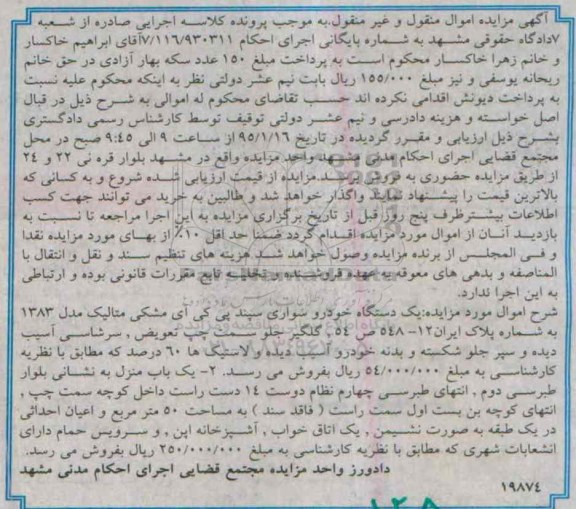 آگهی مزایده اموال منقول و غیر منقول.به موجب پرونده کلاسه اجرایی صادره از شعبه
۷دادگاه حقوقی مشهد به شماره بایگانی اجرای احکام ۷/۱۱۶/۹۳۰۳۱۱آقای ابراهیم خاکسار
و خانم زهرا خاکسار محکوم است به پرداخت مبلغ ۱۵۰ عدد سکه بهار آزادی در حق خانم
ریحانه یوسفی و نیز مبلغ ۱۵۵/۰۰۰ ریال بابت نیم عشر دولتی نظر به اینکه محکوم علیه نسبت
به پرداخت دیونش اقدامی نکرده اند حسب تقاضای محکوم له اموالی به شرح ذیل در قبال
اصل خواسته و هزینه دادرسی و نیم عشر دولتی توقیف توسط کارشناس رسمی دادگستری
بشرح ذیل ارزیابی و مقرر گردیده در تاریخ ۹۵/۱/۱۶از ساعت ۹ الی ۹:٤۵ صبح در محل
مجتمع قضایی اجرای احکام مدنی مشهد واحد مزایده واقع در مشهد بلوار قره نی ۲۲ و ۲٤
از طریق مزایده حضوری به فروش برسد.مزایده از قیمت ارزیابی شده شروع و به کسانی که
بالاترین قیمت را پیشنهاد نمایند واگذار خواهد شد و طالبین به خرید می توانند جهت کسب
اطلاعات بیشترظرف پنج روز قبل از تاریخ برگزاری مزایده به این اجرا مراجعه تا نسبت به
بازدید آنان از اموال مورد مزایده اقدام گردد ضمنا حد اقل ۱۰٪ از بهای مورد مزایده نقدا
و فی المجلس از برنده مزایده وصول خواهد شد هزینه های تنظیم سند و نقل و انتقال با
المناصفه و بدهی های معوقه به عهده فروشنده و تخلیه تابع مقررات قانونی بوده و ارتباطی
به این اجرا ندارد.
شرح اموال مورد مزایده:یک دستگاه خودرو سواری سپند پی کی آی مشکی متالیک مدل ۱۳۸۳
به شماره پلاک ایران۱۲- ۵٤۸ ص ۵٤ ، گلگیر جلو سمت چپ تعویض , سرشاسی آسیب
دیده و سپر جلو شکسته و بدنه خودرو آسیب دیده و لاستیک ها ۶۰ درصد که مطابق با نظریه
کارشناسی به مبلغ ۵٤/۰۰۰/۰۰۰ ریال بفروش می رسد. ۲- یک باب منزل به نشانی بلوار
طبرسی دوم , انتهای طبرسی چهارم نظام دوست ۱٤ دست راست داخل کوچه سمت چپ ,
انتهای کوچه بن بست اول سمت راست ( فاقد سند ) به مساحت ۵۰ متر مربع و اعیان احداثی
در یک طبقه به صورت نشیمن , یک اتاق خواب , آشپزخانه اپن , و سرویس حمام دارای
انشعابات شهری که مطابق با نظریه کارشناسی به مبلغ ۲۵۰/۰۰۰/۰۰۰ ریال بفروش می رسد.
دادورز واحد مزایده مجتمع قضایی اجرای احکام مدنی مشهد
۱۹۸۷٤